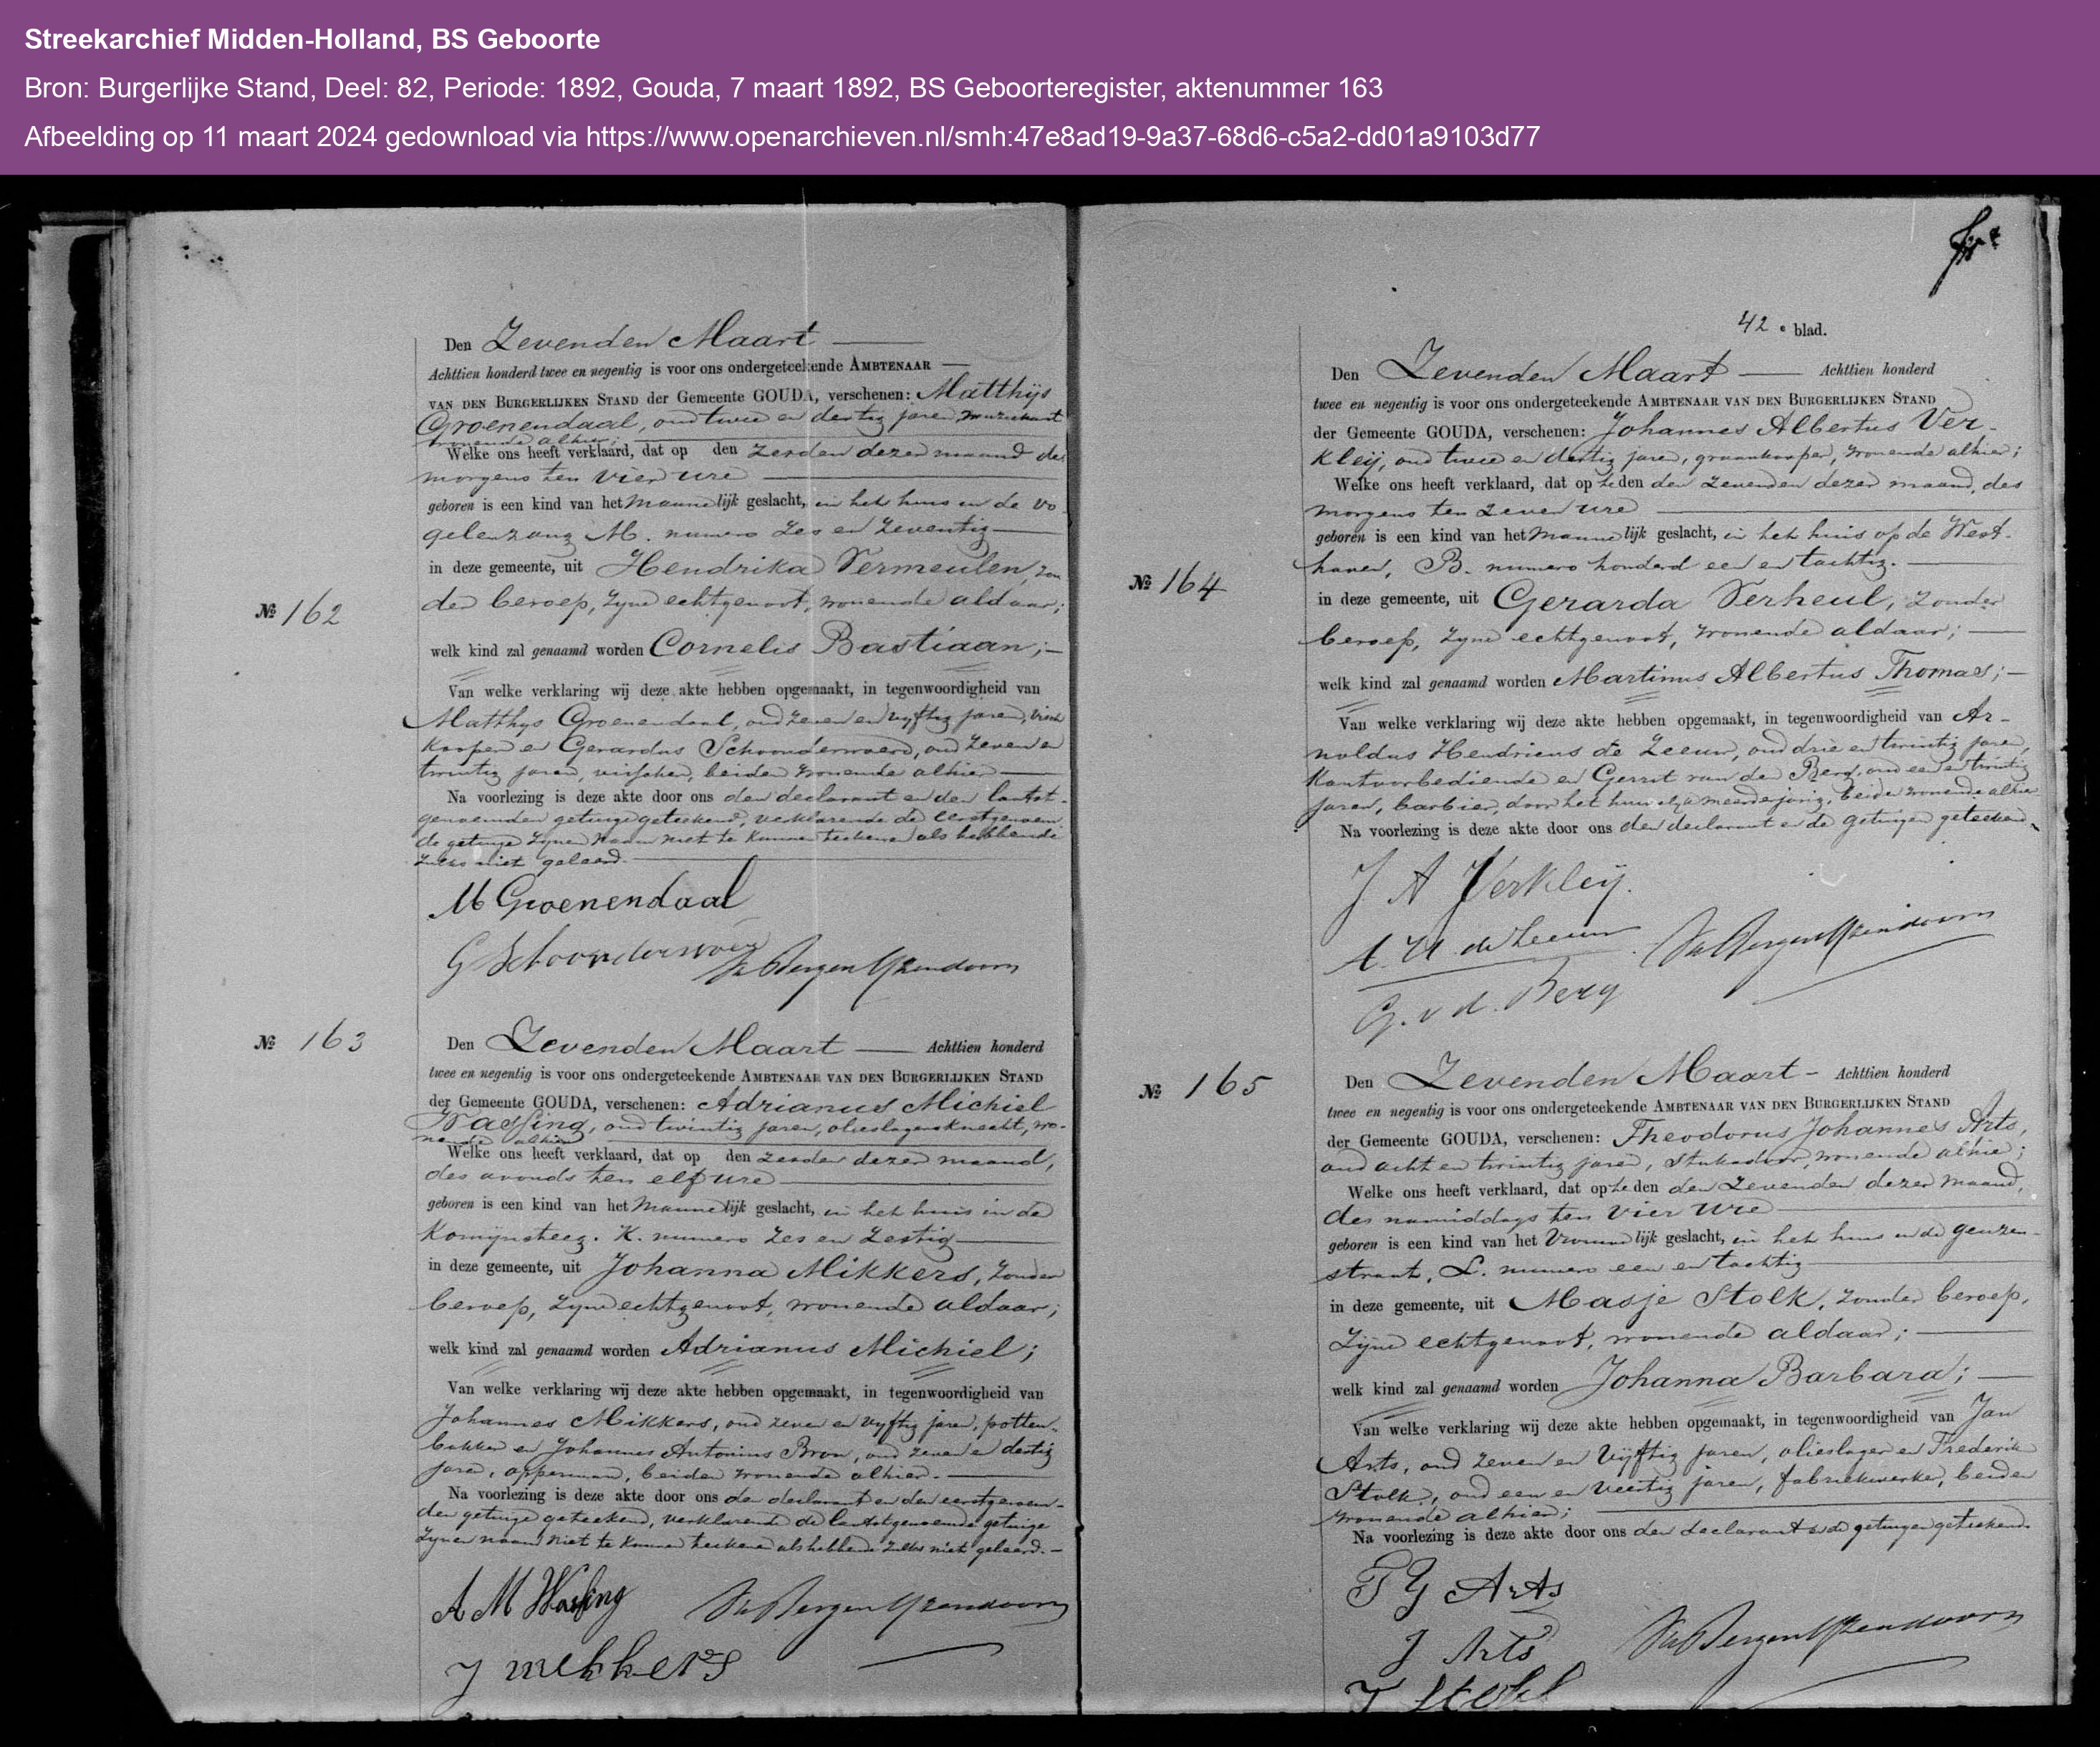 Streekarchief Midden-Holland, BS Geboorte
Bron: Burgerlijke Stand, Deel: 82, Periode: 1892, Gouda, 7 maart 1892, BS Geboorteregister, aktenummer 163
Afbeelding op 11 maart 2024 gedownload via https://www.openarchieven.nl/smh:47e8ad19-9a37-68d6-c5a2-dd01a9103d77
№ 162
Den Zevenden Maart
Achttien honderd twee en negentig is voor ons ondergeteekende AMBTENAAR
VAN DEN BURGERLIJKEN STAND der Gemeente GOUDA, verschenen: Matthijs
Groenendaal, oud twee en dertig jaren, muzikant
wonende alhier;
Welke ons heeft verklaard, dat op den zesden dezer maand des
morgens ten vier ure
geboren is een kind van het mannelijk geslacht, in het huis in de Vo-
gelenzang M. numero zes en zeventig
in deze gemeente, uit Hendrika Vermeulen, zon
der beroep, zijne echtgenoot, wonende aldaar;
welk kind zal genaamd worden Cornelis Bastiaan;
Van welke verklaring wij deze akte hebben opgemaakt, in tegenwoordigheid van
Matthys Groenendaal, oud zeven en vyftig jaren, visch
kooper en Gerardus Schoonderwoerd, oud zeven en
twintig jaren, visscher, beiden wonende alhier
Na voorlezing is deze akte door ons den declarant en den laatst-
genoemden getuige geteekend, verklarende de eerstgenoem
de getuige zynen naam niet te kunnen teekenen als hebbende
zulks niet geleerd.
M Groenendaal
G Schoonderwoerd
van Bergen IJzendoorn
№ 163
Den Zevenden Maart Achttien honderd
twee en negentig is voor ons ondergeteekende AMBTENAAR VAN DEN BURGERLIJKEN STAND
der Gemeente GOUDA, verschenen: Adrianus Michiel
Wassing, oud twintig jaren, olieslagersknecht, wo-
nende alhier
Welke ons heeft verklaard, dat op den zesden dezer maand,
des avonds ten elf ure
geboren is een kind van het mannelijk geslacht, in het huis in de
Komijnsteeg. K. numero zes en zestig
in deze gemeente, uit Johanna Mikkers, zonder
beroep, zyne echtgenoot, wonende aldaar;
welk kind zal genaamd worden Adrianus Michiel;
Van welke verklaring wij deze akte hebben opgemaakt, in tegenwoordigheid van
Johannes Mikkers, oud zeven en vyftig jaren, potten-
bakker en Johannes Antonius Bron, oud zeven en dertig
jaren, opperman, beiden wonende alhier.
Na voorlezing is deze akte door ons den declarant en den eerstgenoem-
den getuige geteekend, verklarende de laatstgenoemde getuige
zynen naam niet te kunnen teekenen als hebbende zulks niet geleerd.
A M Wassing
van Bergen IJzendoorn
J mekkers
42e blad.
№ 164
Den Zevenden Maart Achttien honderd
twee en negentig is voor ons ondergeteekende AMBTENAAR VAN DEN BURGERLIJKEN STAND
der Gemeente GOUDA, verschenen: Johannes Albertus Ver-
kleij, oud twee en dertig jaren, graankooper, wonende alhier;
Welke ons heeft verklaard, dat op heden den zevenden dezer maand, des
morgens ten zeven ure
geboren is een kind van het mannelijk geslacht, in het huis op de West-
haven, B. numero honderd een en tachtig.
in deze gemeente, uit Gerarda Verheul, zonder
beroep, zyne echtgenoot, wonende aldaar;
welk kind zal genaamd worden Martinus Albertus Thomas;
Van welke verklaring wij deze akte hebben opgemaakt, in tegenwoordigheid van Ar-
noldus Hendricus de Zeeuw, oud drie en twintig jaren,
kantoorbediende en Gerrit van den Berg, oud een en twintig
jaren, barbier, door het huwelyk meerderjarig, beiden wonende alhier
Na voorlezing is deze akte door ons den declarant en de getuigen geteekend.
J A Verkleij.
A. H. de Zeeuw
van Bergen IJzendoorn
G. v d. Berg
№ 165
Den Zevenden Maart - Achttien honderd
twee en negentig is voor ons ondergeteekende AMBTENAAR VAN DEN BURGERLIJKEN STAND
der Gemeente GOUDA, verschenen: Theodorus Johannes Arts,
oud acht en twintig jaren, stukadoor, wonende alhier;
Welke ons heeft verklaard, dat op heden den zevenden dezer maand,
des namiddags ten vier ure
geboren is een kind van het Vrouwelijk geslacht, in het huis in de geuzen-
straat, L. numero een en tachtig
in deze gemeente, uit Masje Stolk, zonder beroep,
zijne echtgenoot, wonende aldaar;
welk kind zal genaamd worden Johanna Barbara;
Van welke verklaring wij deze akte hebben opgemaakt, in tegenwoordigheid van Jan
Arts, oud zeven en vijftig jaren, olieslager en Frederik
Stolk, oud een en veertig jaren, fabriekwerker, beiden
wonende alhier;
Na voorlezing is deze akte door ons den declarant en de getuigen geteekend.
T J Arts
J Arts
van Bergen IJzendoorn